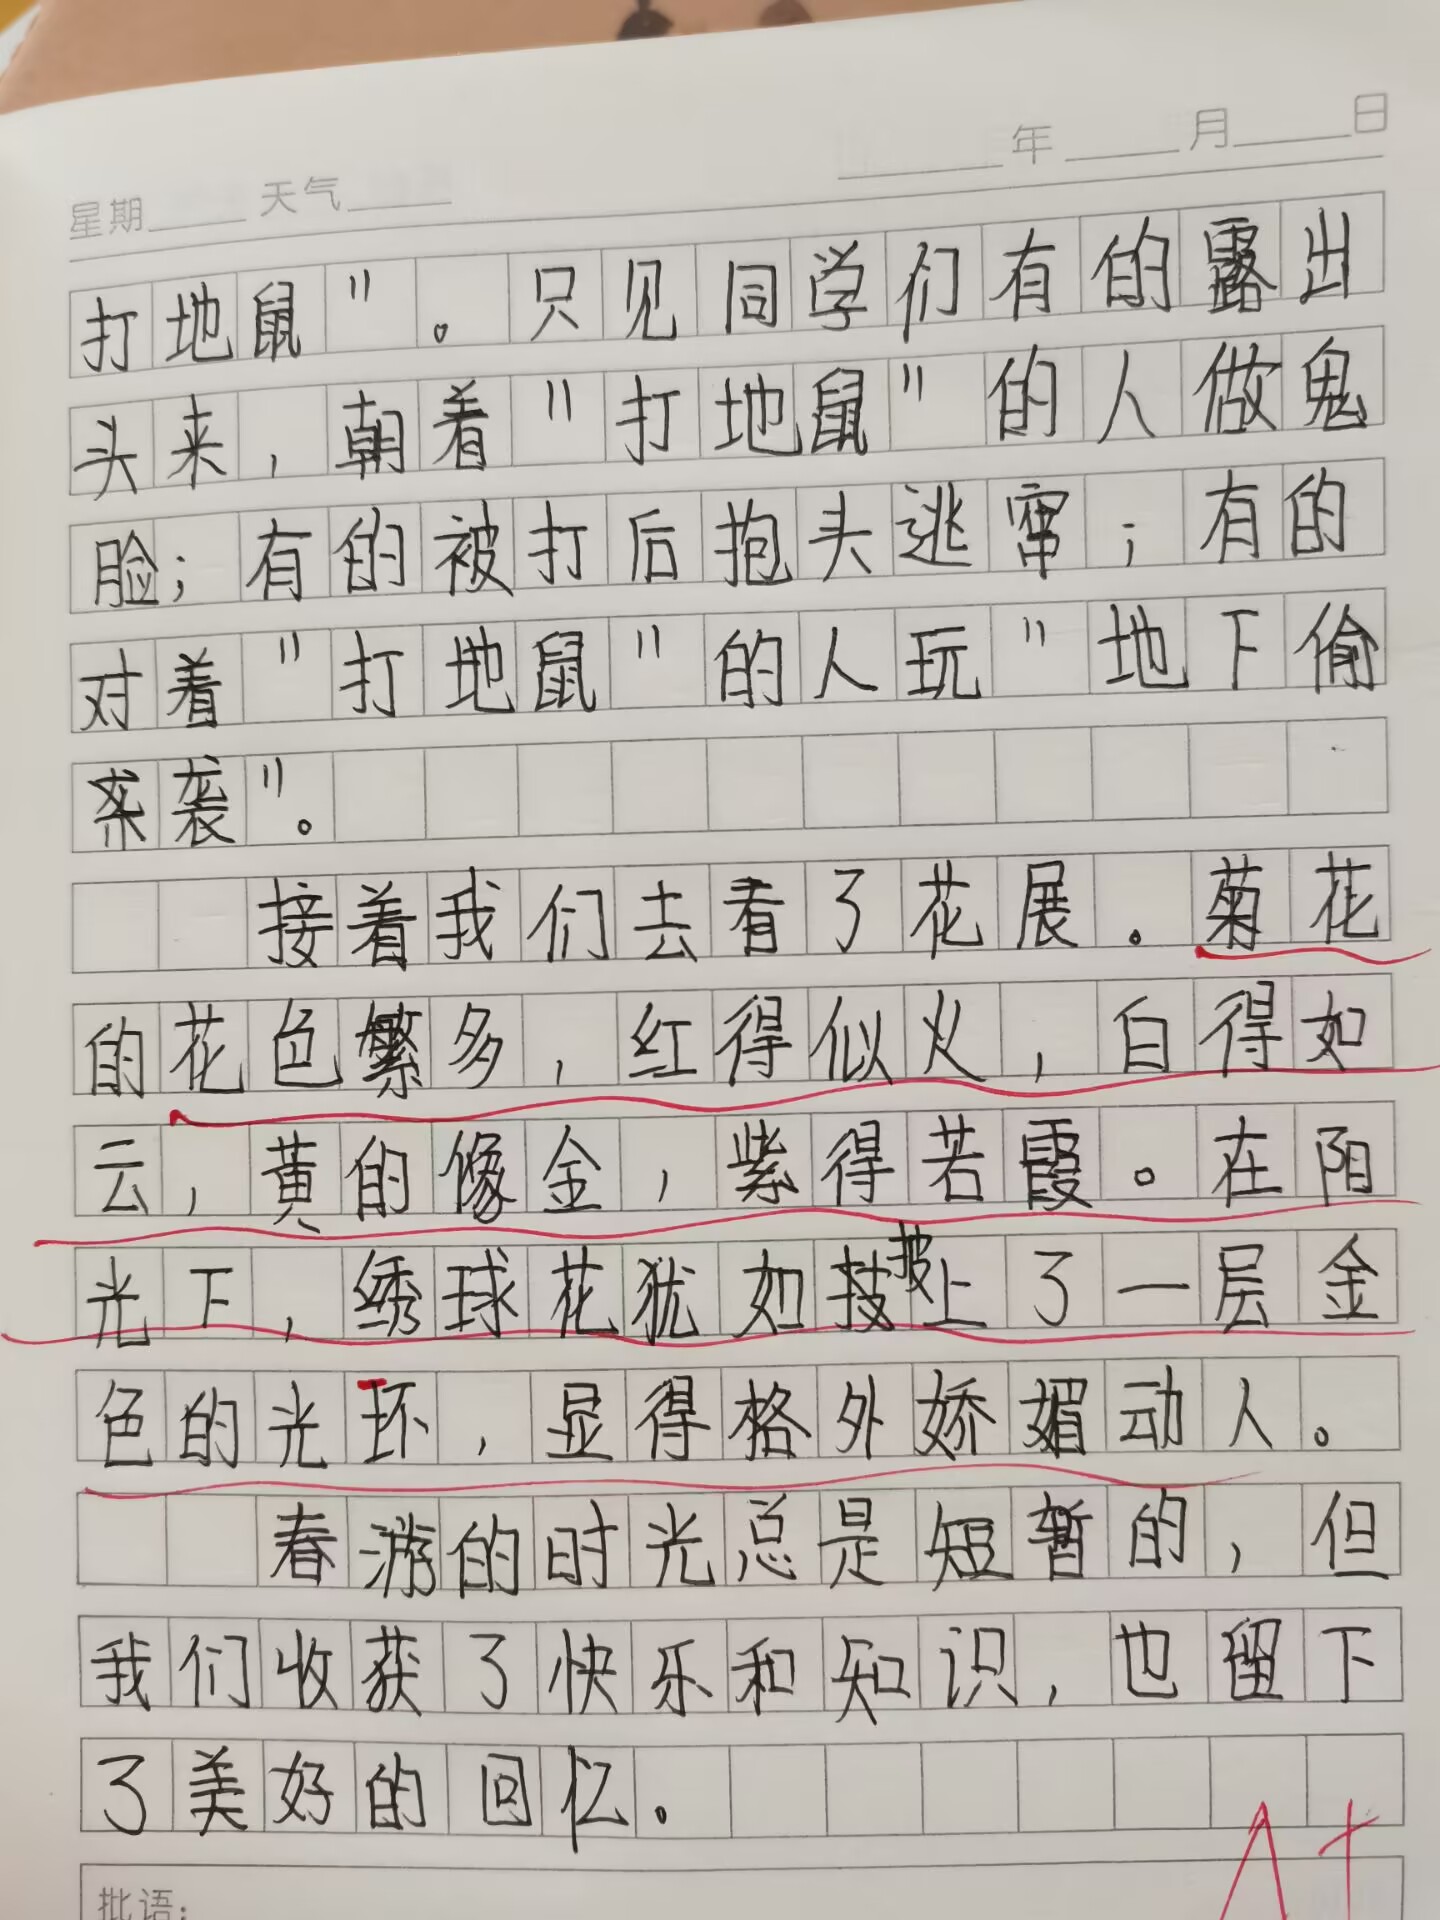 年 月 日
星期 天气
打地鼠"。只见同学们有的露出
头来，朝着"打地鼠"的人做鬼
脸；有的被打后抱头逃窜；有的
对着"打地鼠"的人玩"地下偷
袭"。
接着我们去看了花展。菊花
的花色繁多，红得似火，白得如
云，黄的像金，紫得若霞。在阳
光下，绣球花犹如披上了一层金
色的光环，显得格外娇媚动人。
春游的时光总是短暂的，但
我们收获了快乐和知识，也留下
了美好的回忆。
A+
批语：